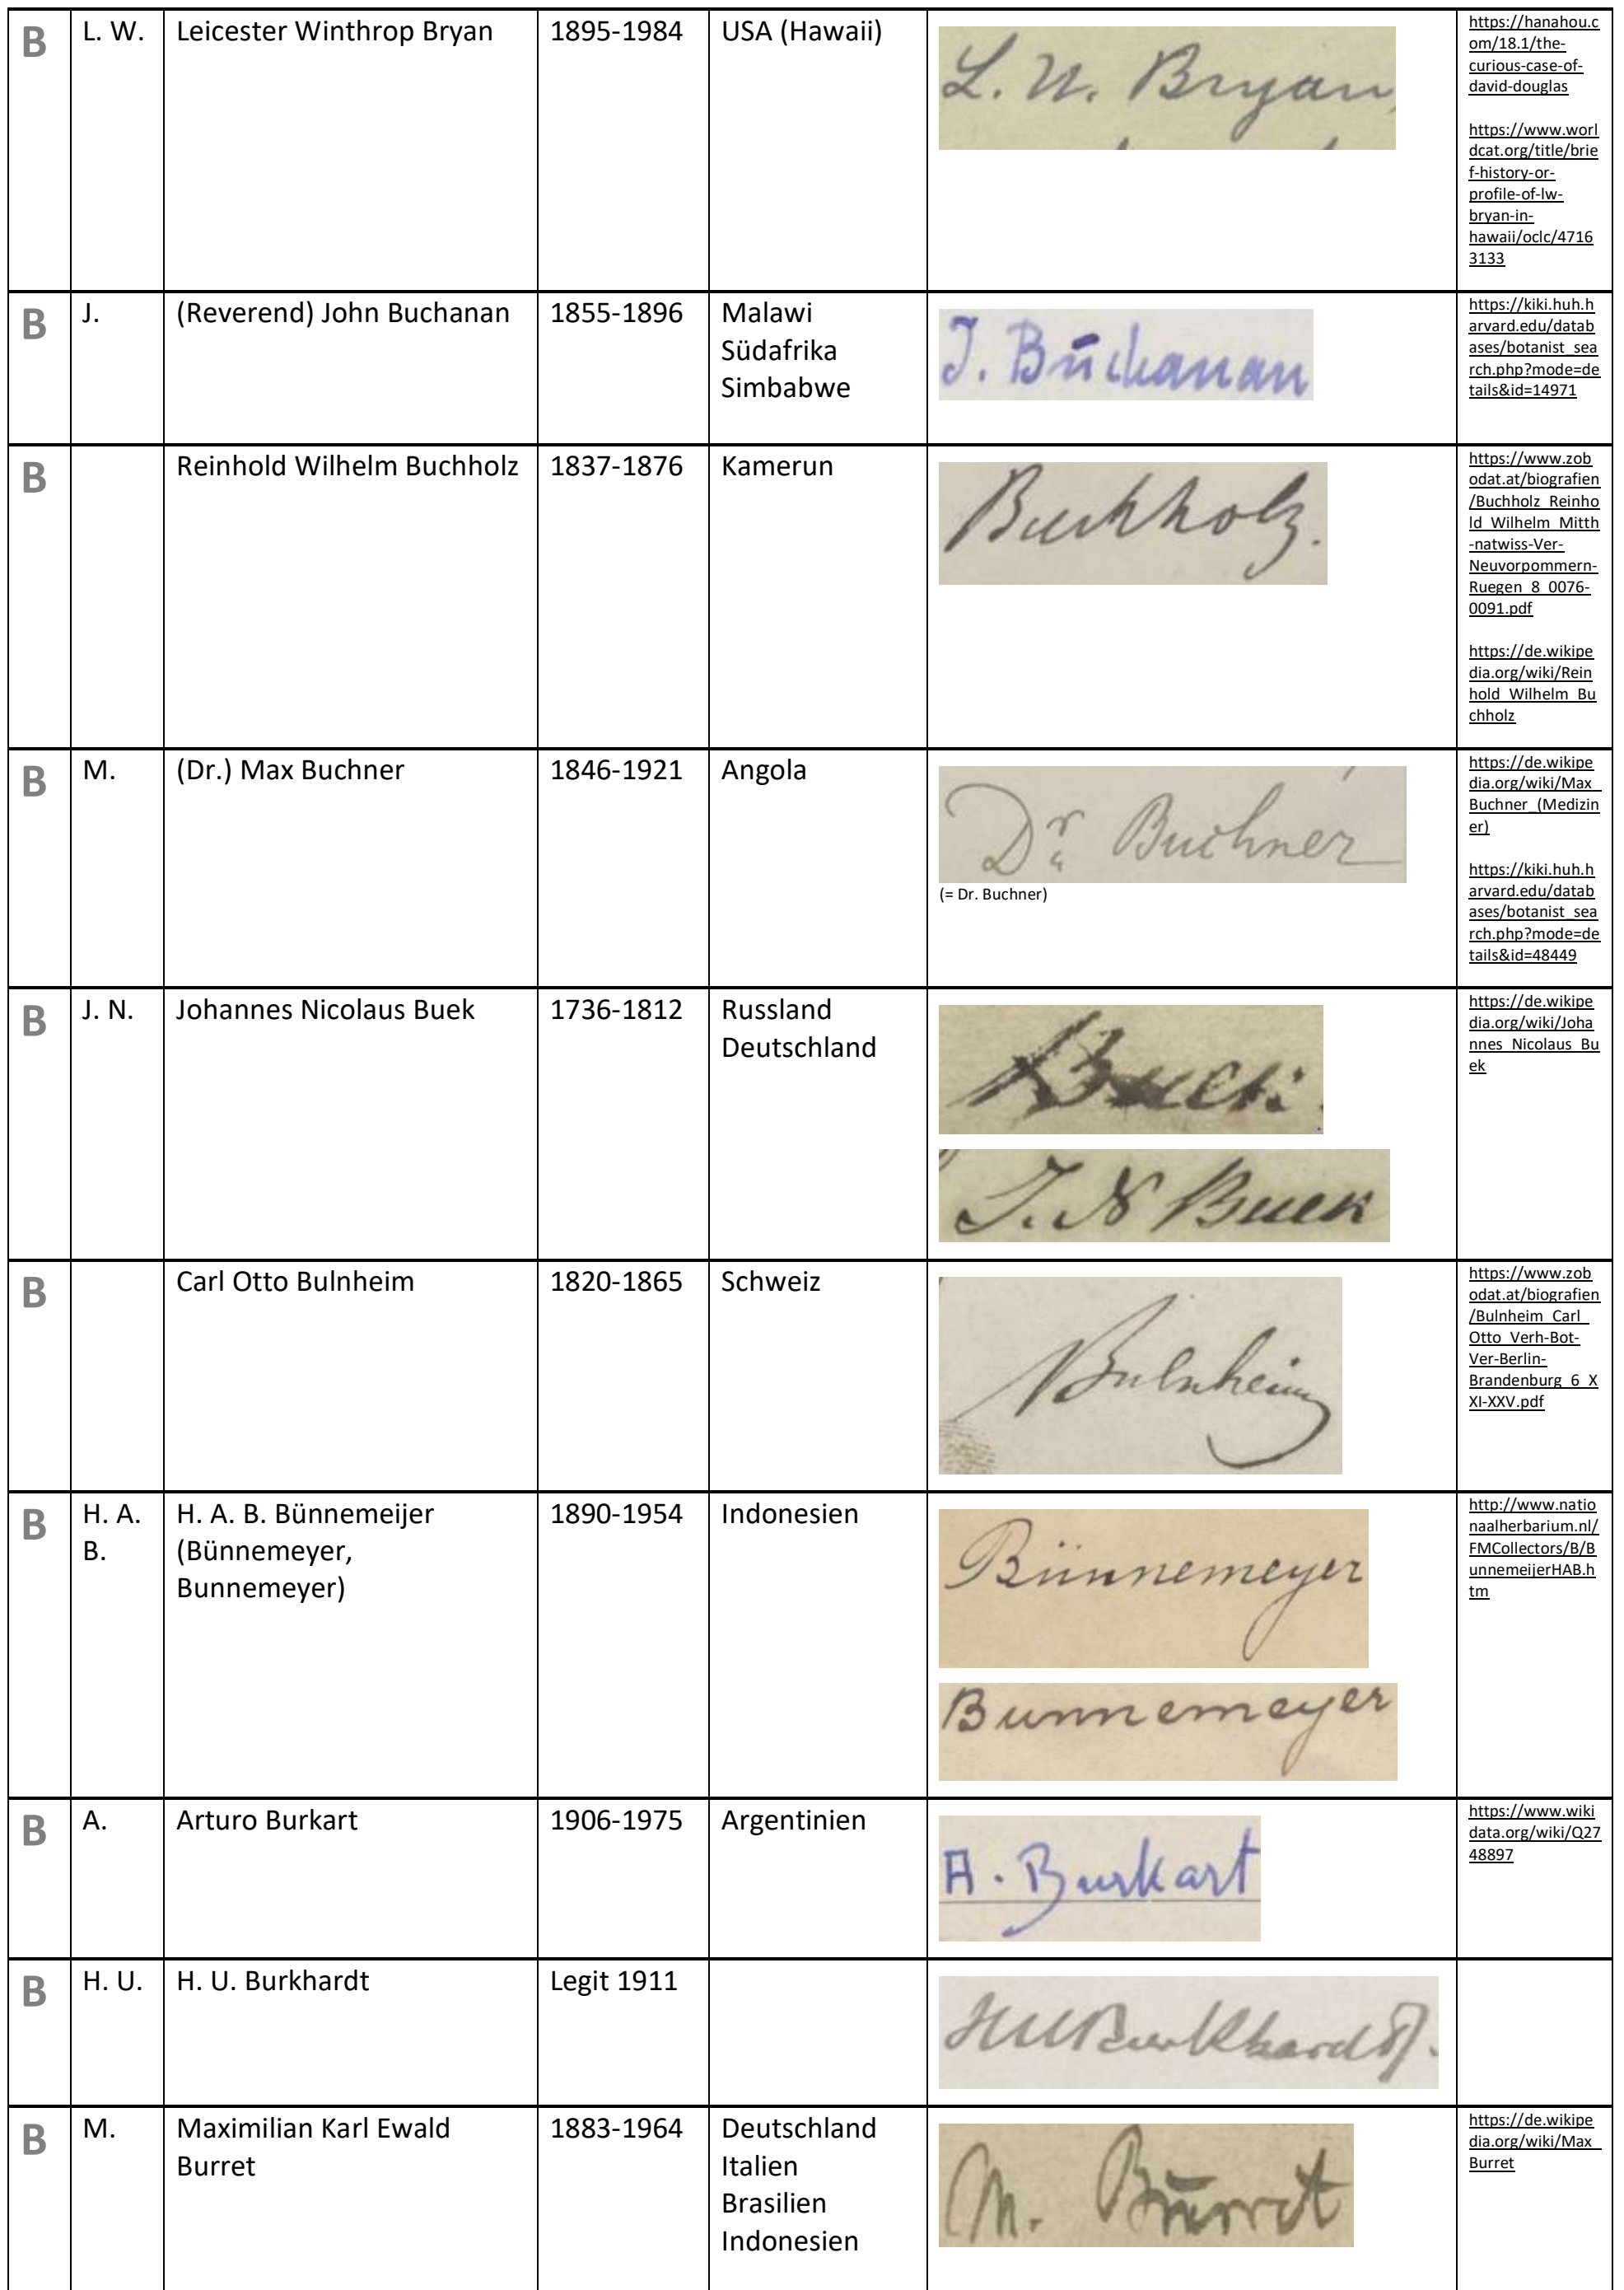 B
L. W.
Leicester Winthrop Bryan
1895-1984
USA (Hawaii)
L. W. Bryan,
https://hanahou.c
om/18.1/the-
curious-case-of-
david-douglas
https://www.worl
dcat.org/title/brie
f-history-or-
profile-of-lw-
bryan-in-
hawaii/oclc/4716
3133
B
J.
(Reverend) John Buchanan
1855-1896
Malawi
Südafrika
Simbabwe
J. Buchanan
https://kiki.huh.h
arvard.edu/datab
ases/botanist_sea
rch.php?mode=de
tails&id=14971
B
Reinhold Wilhelm Buchholz
1837-1876
Kamerun
Buchholz.
https://www.zob
odat.at/biografien
/Buchholz_Reinho
ld_Wilhelm_Mitth
-natwiss-Ver-
Neuvorpommern-
Ruegen_8_0076-
0091.pdf
https://de.wikipe
dia.org/wiki/Rein
hold_Wilhelm_Bu
chholz
B
M.
(Dr.) Max Buchner
1846-1921
Angola
Dr. Buchner
(= Dr. Buchner)
https://de.wikipe
dia.org/wiki/Max_
Buchner_(Medizin
er)
https://kiki.huh.h
arvard.edu/datab
ases/botanist_sea
rch.php?mode=de
tails&id=48449
B
J. N.
Johannes Nicolaus Buek
1736-1812
Russland
Deutschland
Buek.
J. N Buek
https://de.wikipe
dia.org/wiki/Joha
nnes_Nicolaus_Bu
ek
B
Carl Otto Bulnheim
1820-1865
Schweiz
Bulnheim
https://www.zob
odat.at/biografien
/Bulnheim_Carl_
Otto_Verh-Bot-
Ver-Berlin-
Brandenburg_6_X
XI-XXV.pdf
B
H. A.
B.
H. A. B. Bünnemeijer
(Bünnemeyer,
Bunnemeyer)
1890-1954
Indonesien
Bünnemeyer
Bunnemeyer
http://www.natio
naalherbarium.nl/
FMCollectors/B/B
unnemeijerHAB.h
tm
B
A.
Arturo Burkart
1906-1975
Argentinien
A. Burkart
https://www.wiki
data.org/wiki/Q27
48897
B
H. U.
H. U. Burkhardt
Legit 1911
HUBurkhardt.
B
M.
Maximilian Karl Ewald
Burret
1883-1964
Deutschland
Italien
Brasilien
Indonesien
M. Burret
https://de.wikipe
dia.org/wiki/Max_
Burret